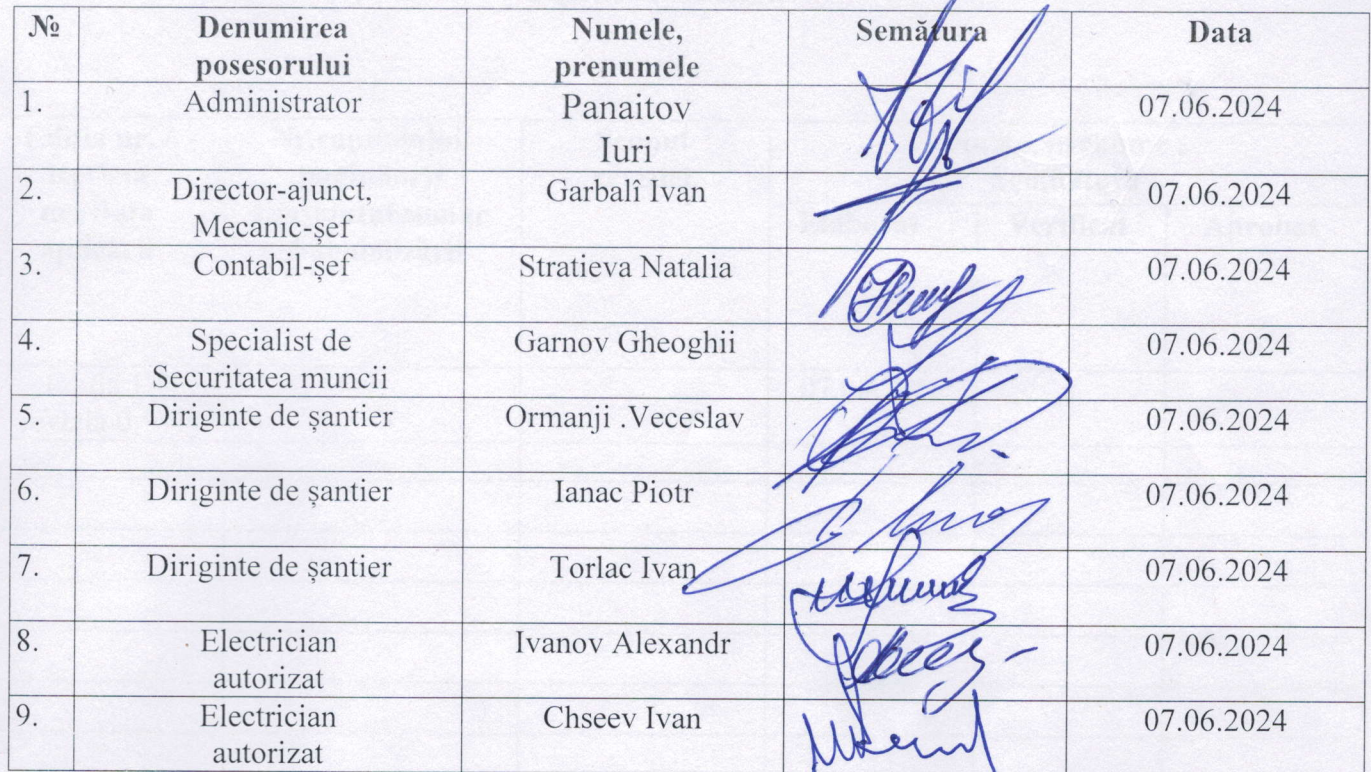 № Denumirea posesorului Numele, prenumele Semătura Data
1. Administrator Panaitov Iuri 07.06.2024
2. Director-ajunct, Mecanic-șef Garbalî Ivan 07.06.2024
3. Contabil-șef Stratieva Natalia 07.06.2024
4. Specialist de Securitatea muncii Garnov Gheoghii 07.06.2024
5 Diriginte de șantier Ormanji .Veceslav 07.06.2024
6. Diriginte de șantier Ianac Piotr 07.06.2024
7. Diriginte de șantier Torlac Ivan 07.06.2024
8. Electrician autorizat Ivanov Alexandr 07.06.2024
9. Electrician autorizat Chseev Ivan 07.06.2024